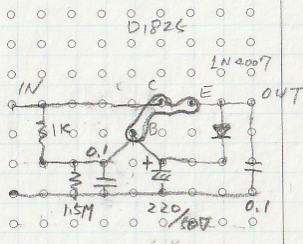 D1825
1N4007
IN
C
E
OUT
B
1K
0.1
+
1.5M
220/50V
0.1